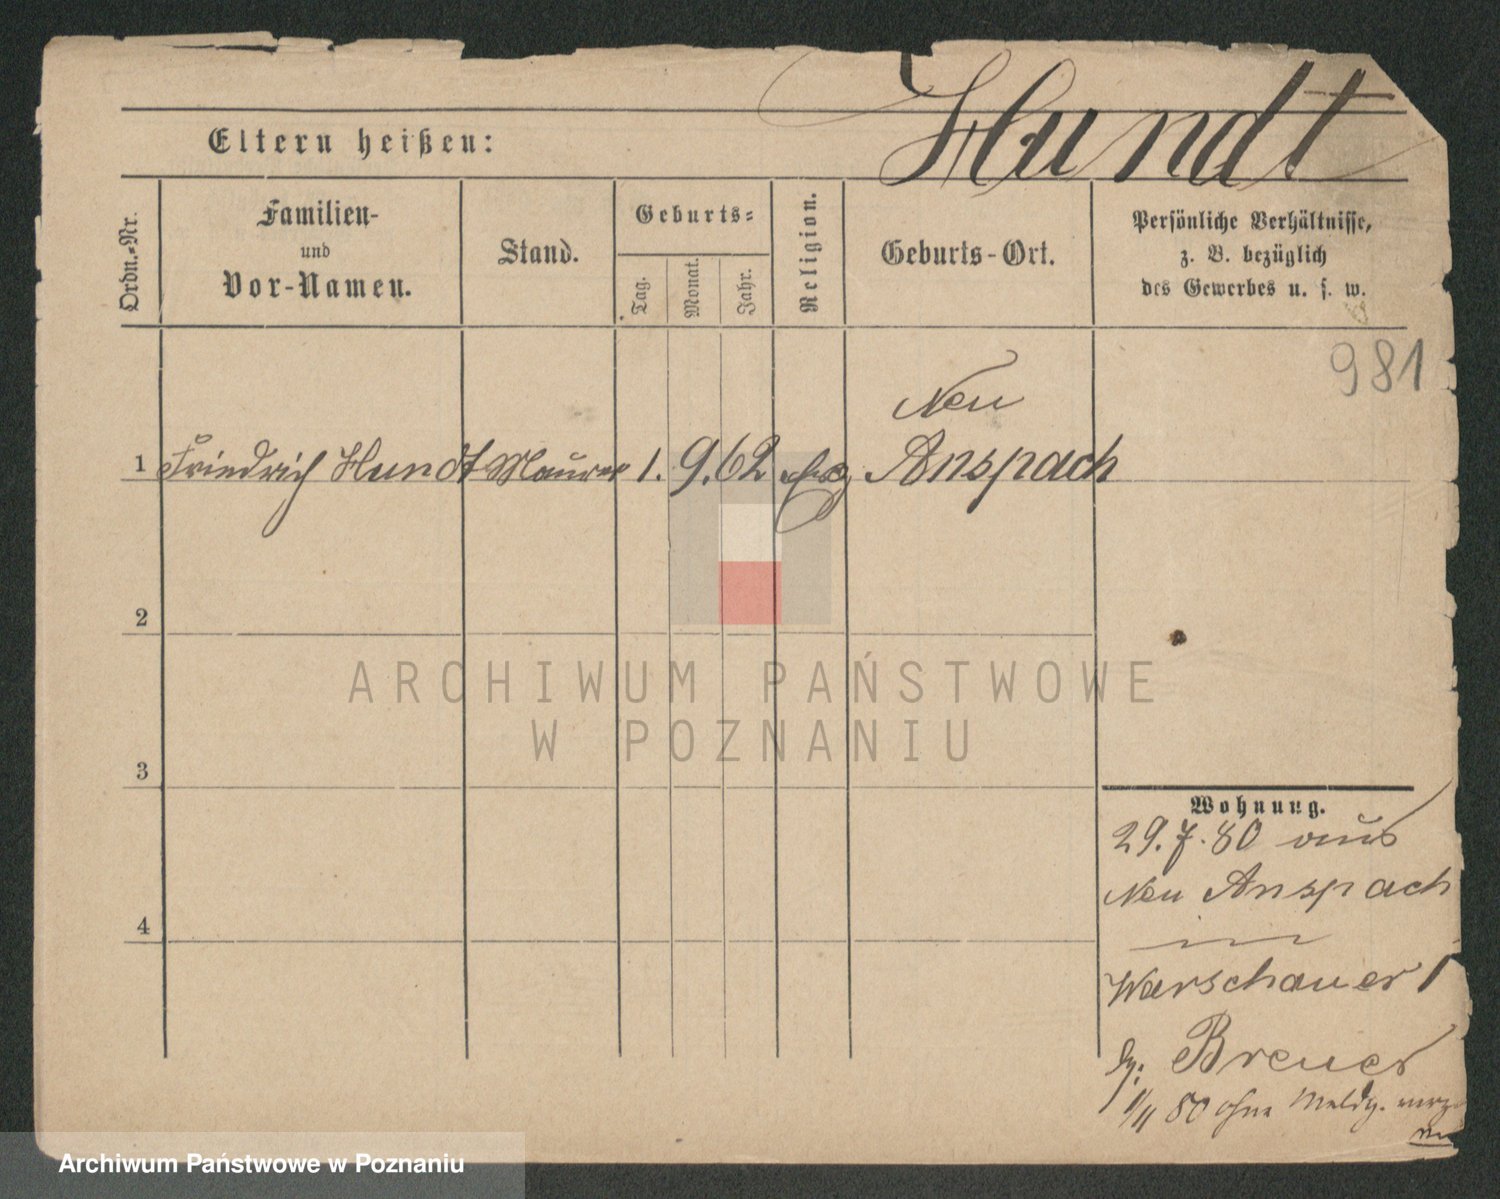 Hundt
Eltern heißen:
Ordn.-Nr.
Familien-
und
Vor-Namen.
Stand.
Geburts-
Tag.
Monat.
Jahr.
Religion.
Geburts-Ort.
Persönliche Verhältnisse,
z. B. bezüglich
des Gewerbes u. s. w.
981
Neu
1 Friedrich Hundt Maurer 1. 9. 62 evg Anspach
2
ARCHIWUM PAŃSTWOWE
W POZNANIU
3
Wohnung.
29. 7. 80 aus
Neu Anspach
4
Warschauer 1
Breuer
1/11 80 ohne Meldg.
Archiwum Państwowe w Poznaniu